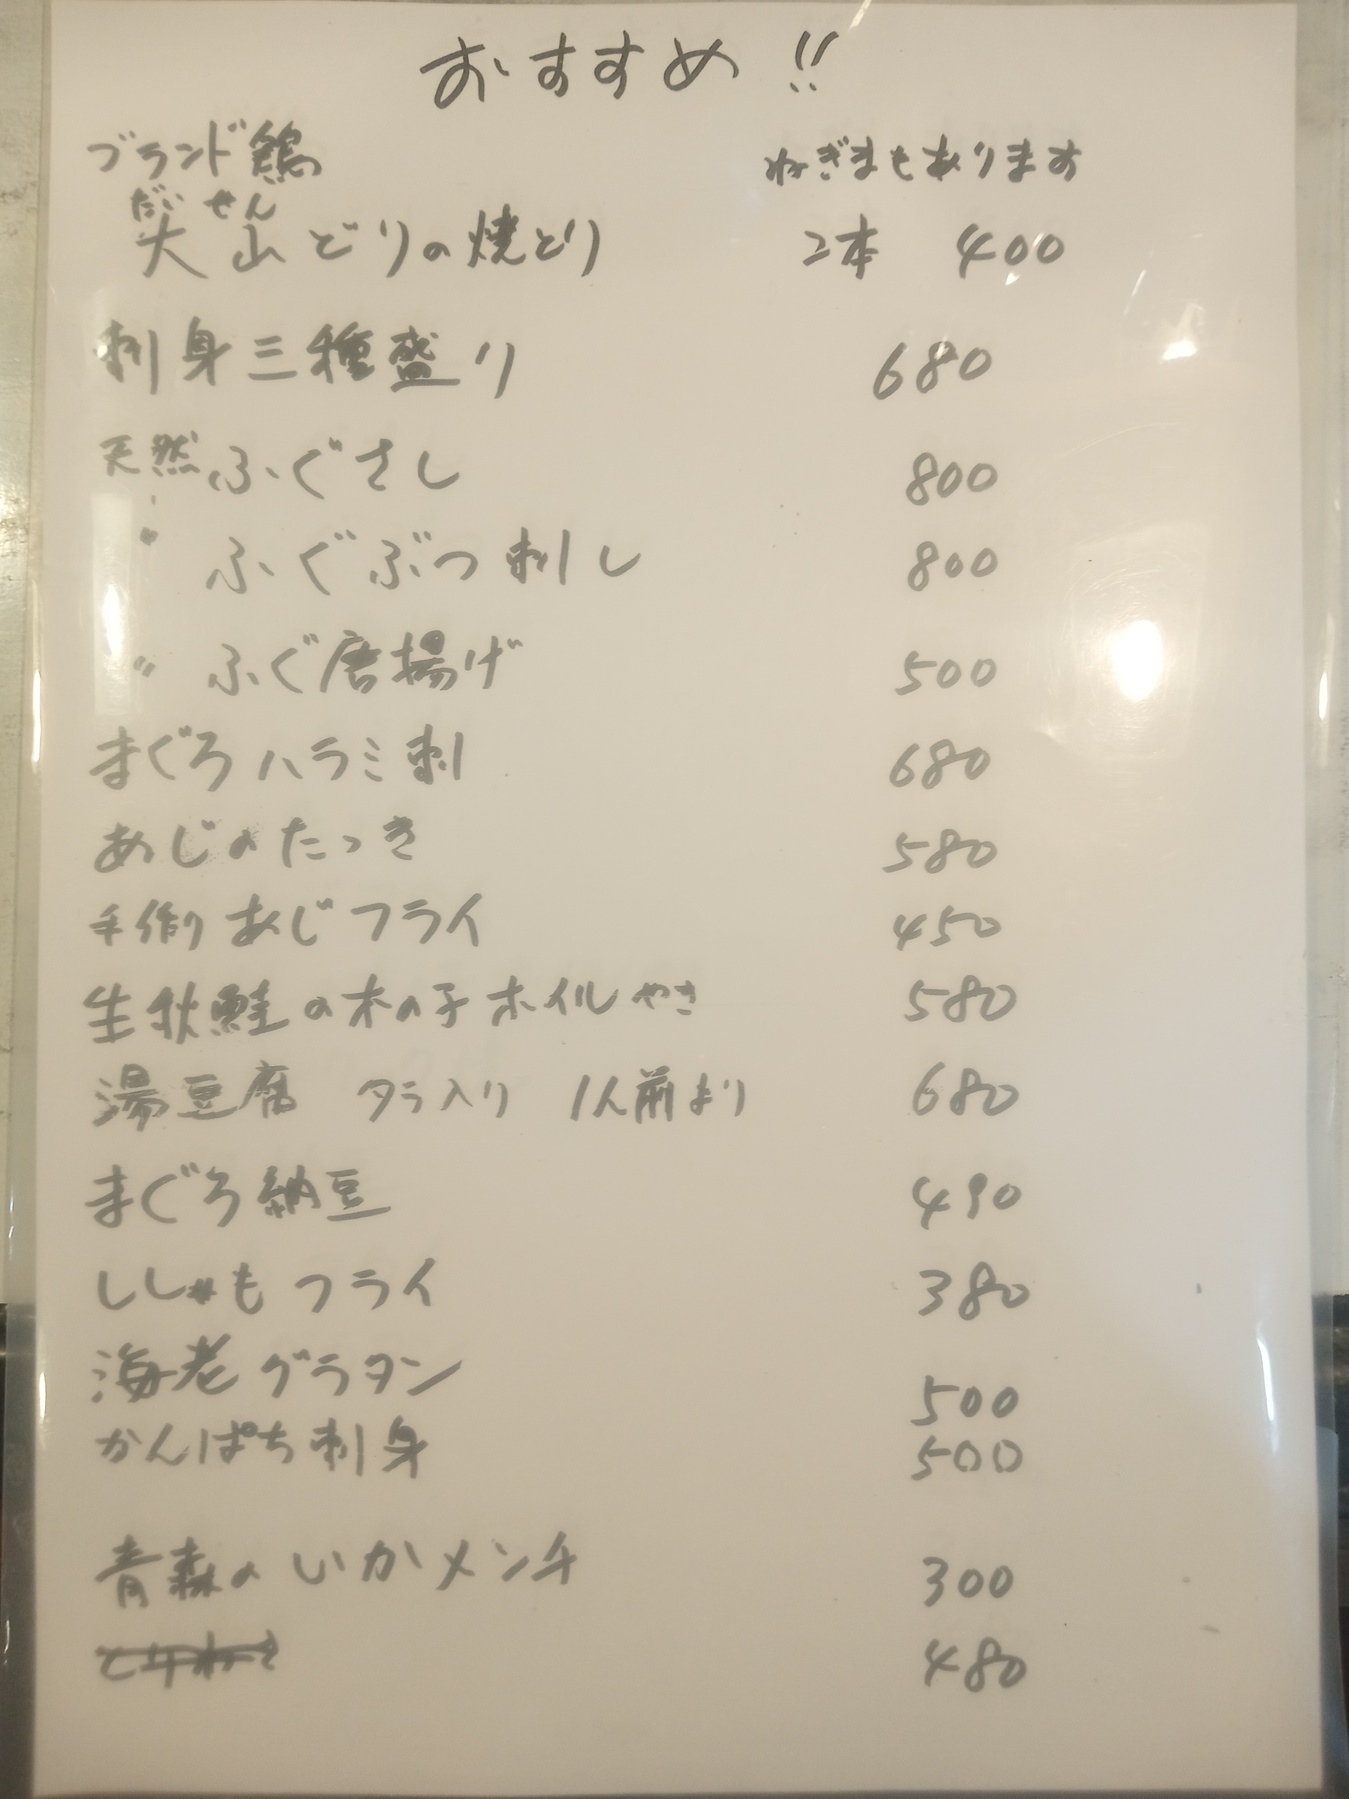 おすすめ!!
ブランド鶏 ねぎまもあります
だいせん
大山どりの焼とり 2本 400
刺身三種盛り 680
天然ふぐさし 800
〃 ふぐぶつ刺し 800
〃 ふぐ唐揚げ 500
まぐろハラミ刺 680
あじのたっき 580
手作りあじフライ 450
生秋鮭の木の子ホイルやき 580
湯豆腐 タラ入り 1人前より 680
まぐろ納豆 490
ししゃもフライ 380
海老グラタン 500
かんぱち刺身 500
青森のいかメンチ 300
480